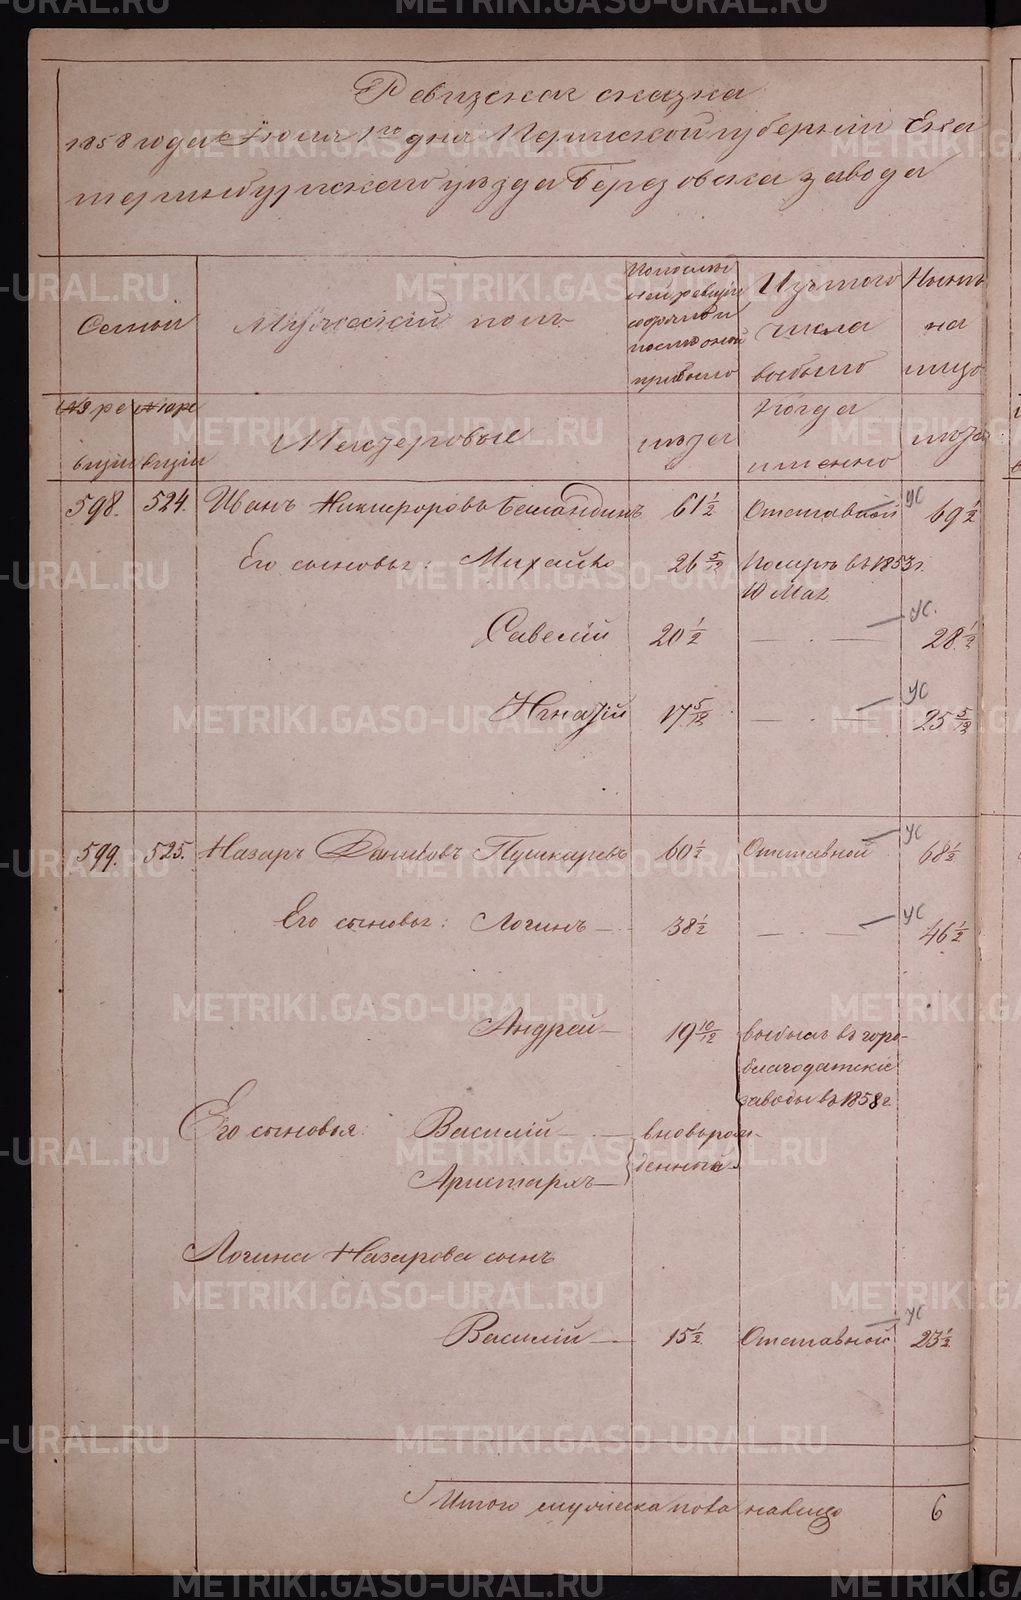 Ревизская сказка
1858 года Июня 1го дня Пермской губернии Ека
теринбургскаго уезда Березовска завода
Семьи
Мужеский полъ
По послед
ней ревизіи
состояло и
после оной
прибыло
Изъ того
числа
выбыло
Ныне
на
лицо
№ ре
визіи
№ по ре
визіи
Мастеровые
лета
Когда
именно
лета
598. 524. Иванъ Никифоровъ 61 1/2 Отставной УС 69 1/2
Его сыновья: Михайло 26 5/12 Померъ въ 1853 г.
10 Мая
Савелій 20 1/2 — . — УС. 28 1/2
Игнатій 17 5/12 — . — УС 25 5/12
599. 525. Назаръ Даниловъ Пушкаревъ 60 1/2 Отставной УС 68 1/2
Его сыновья: Логинъ — 38 1/2 — . — УС 46 1/2
Андрей — 19 10/12 выбылъ въ горо-
благодатскіе
заводы въ 1858 г.
Его сыновья: Василій — вноворож-
Аристархъ — денный
Логина Назарова сынъ
Василій — 15 1/2 Отставной УС 23 1/2
Итого мужеска пола налицо 6
METRIKI.GASO-URAL.RU